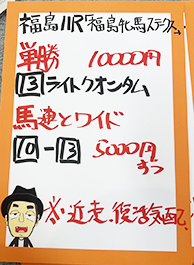 福島11R「福島牝馬ステークス」
単勝 10000円
13 ライトクオンタム
馬連とワイド
10-13 5000円
ずつ
※近走、復活気配?